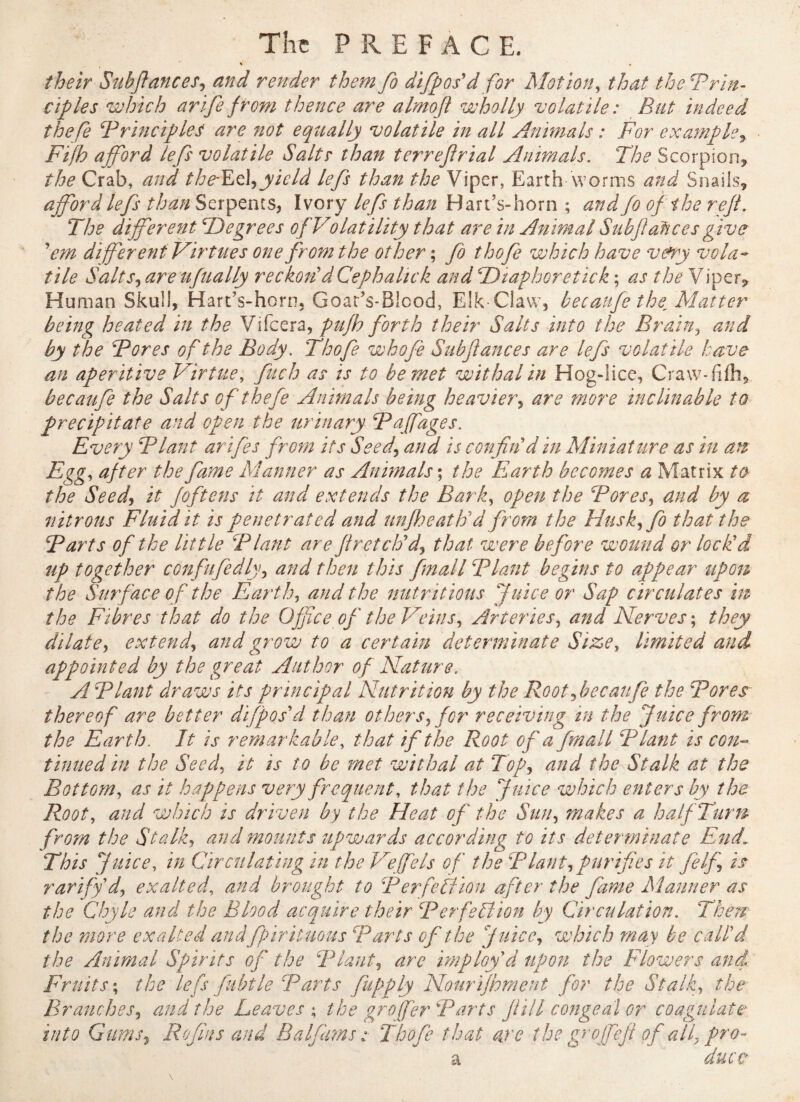 The PREFACE.
their Subſtances, and render them ſo diſpos'd for Motion, that the Prin-
ciples which ariſe from thence are almoſt wholly volatile: But indeed
theſe Principles are not equally volatile in all Animals: For example,
Fiſh afford leſs volatile Salts than terreſtrial Animals. The Scorpion,
the Crab, and the Eel, yield leſs than the Viper, Earth worms and Snails,
afford leſs than Serpents, Ivory leſs than Hart's-horn ; and ſo of the reſt.
The different Degrees of Volatility that are in Animal Subſtances give
'em different Virtues one from the other; ſo thoſe which have very vola-
tile Salts, are uſually reckon'd Cephalick and Diaphoretick; as the Viper,
Human Skull, Hart's-horn, Goat's-Blood, Elk-Claw, becauſe the Matter
being heated in the Viſcera, puſh forth their Salts into the Brain, and
by the Pores of the Body. Thoſe whoſe Subſtances are leſs volatile have
an aperitive Virtue, ſuch as is to be met withal in Hog-lice, Craw-fiſh,
becauſe the Salts of theſe Animals being heavier, are more inclinable to
precipitate and open the urinary Paſſages.
Every Plant ariſes from its Seed, and is confin'd in Miniature as in an
Egg, after the ſame Manner as Animals; the Earth becomes a Matrix to
the Seed, it ſoftens it and extends the Bark, open the Pores, and by a
nitrous Fluid it is penetrated and unſheath'd from the Husk, ſo that the
Parts of the little Plant are ſtretch'd, that were before wound or lock'd
up together confuſedly, and then this ſmall Plant begins to appear upon
the Surface of the Earth, and the nutritious Juice or Sap circulates in
the Fibres that do the Office of the Veins, Arteries, and Nerves; they
dilate, extend, and grow to a certain determinate Size, limited and
appointed by the great Author of Nature.
A Plant draws its principal Nutrition by the Root, becauſe the Pores
thereof are better diſpos'd than others, for receiving in the Juice from
the Earth. It is remarkable, that if the Root of a ſmall Plant is con-
tinued in the Seed, it is to be met withal at Top, and the Stalk at the
Bottom, as it happens very frequent, that the Juice which enters by the
Root, and which is driven by the Heat of the Sun, makes a half Turn
from the Stalk, and mounts upwards according to its determinate End.
This Juice, in Circulating in the Veſſels of the Plant, purifies it ſelf, is
rarify'd, exalted, and brought to Perfection after the ſame Manner as
the Chyle and the Blood acquire their Perfection by Circulation. Then
the more exalted and ſpirituous Parts of the Juice, which may be call'd
the Animal Spirits of the Plant, are imploy'd upon the Flowers and
Fruits; the leſs ſubtle Parts ſupply Nouriſhment for the Stalk, the
Branches, and the Leaves ; the groſſer Parts ſtill congeal or coagulate
into Gums, Roſins and Balſams: Thoſe that are the groſſeſt of all, pro-
a duce